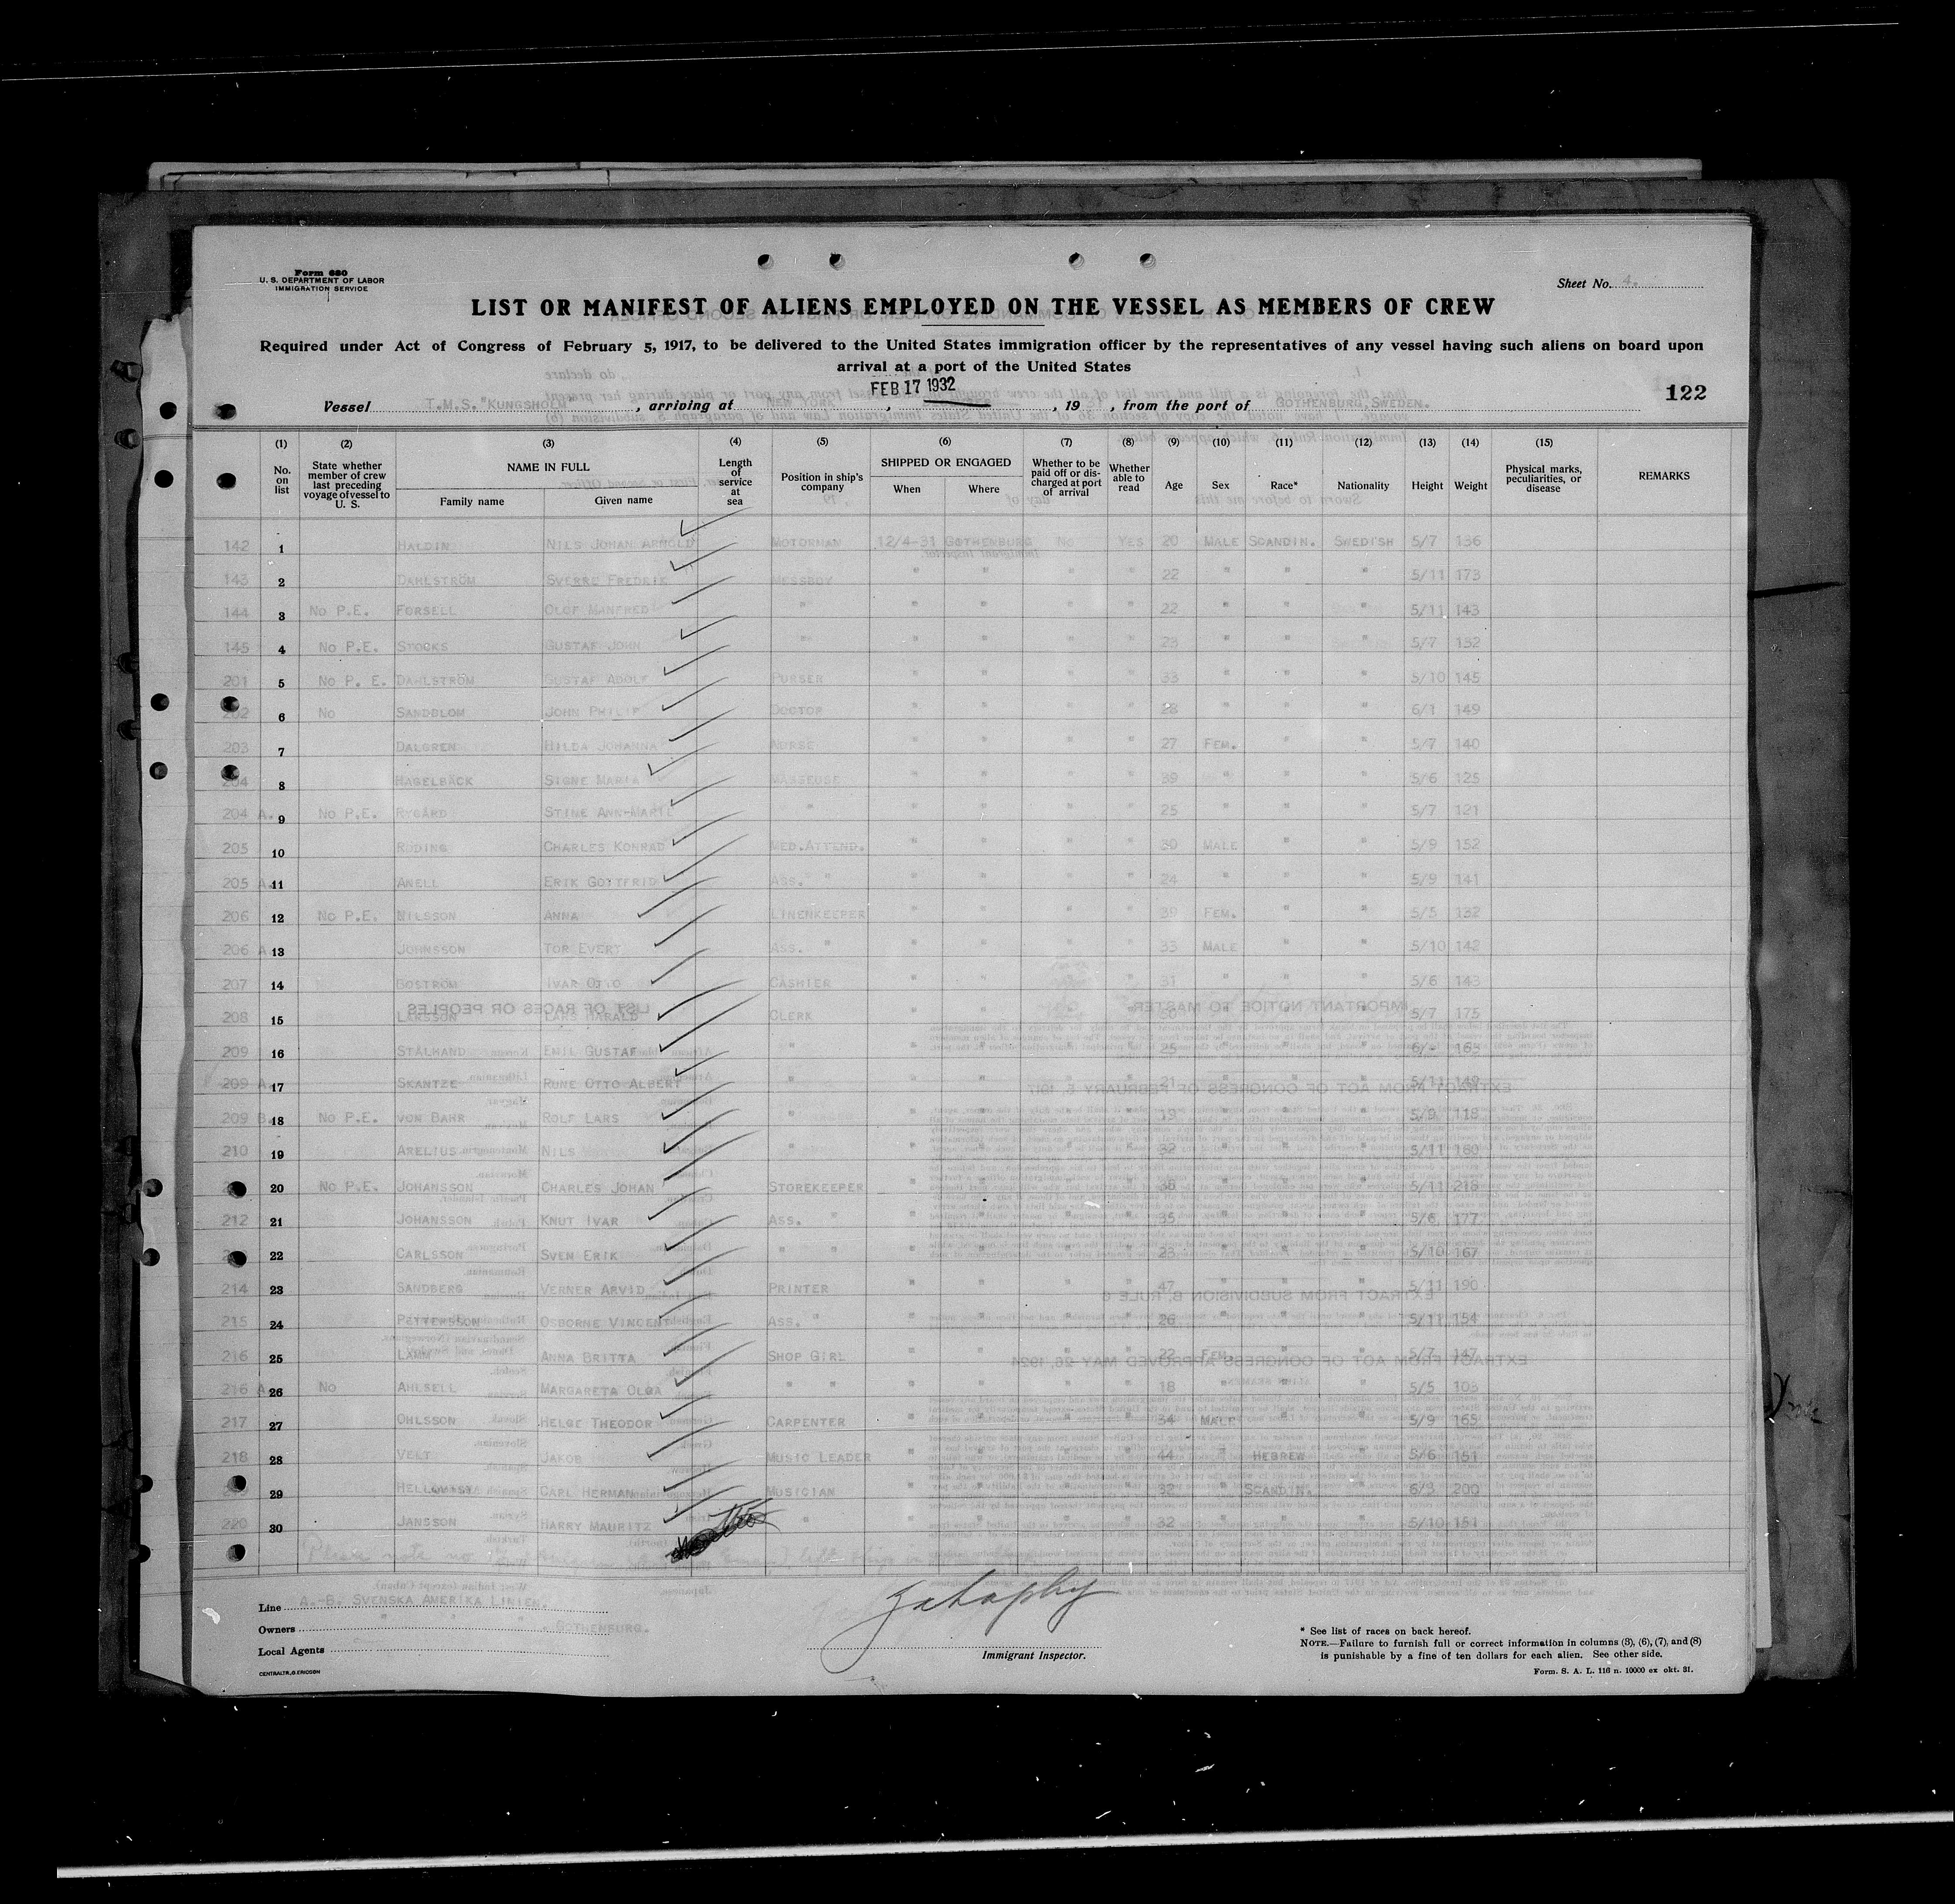 Form 680
U. S. DEPARTMENT OF LABOR
IMMIGRATION SERVICE
Sheet No. 4.
LIST OR MANIFEST OF ALIENS EMPLOYED ON THE VESSEL AS MEMBERS OF CREW
Required under Act of Congress of February 5, 1917, to be delivered to the United States immigration officer by the representatives of any vessel having such aliens on board upon
arrival at a port of the United States
FEB 17 1932
122
Vessel T.M.S."KUNGSHOLM", arriving at NEW YORK, , 19 , from the port of GOTHENBURG, SWEDEN.
(1) (2) (3) (4) (5) (6) (7) (8) (9) (10) (11) (12) (13) (14) (15)
No. on list State whether member of crew last preceding voyage of vessel to U. S. NAME IN FULL Family name Given name Length of service at sea Position in ship's company SHIPPED OR ENGAGED When Where Whether to be paid off or discharged at port of arrival Whether able to read Age Sex Race* Nationality Height Weight Physical marks, peculiarities, or disease REMARKS
142 1 HALDIN NILS JOHAN ARNOLD MOTORMAN 12/4-31 GOTHENBURG NO YES 20 MALE SCANDIN. SWEDISH 5/7 136
143 2 DAHLSTRÖM SVERRE FREDRIK MESSBOY " " " " 22 " " " 5/11 173
144 3 NO P.E. FORSELL OLOF MANFRED " " " " " 22 " " " 5/11 143
145 4 NO P.E. STOCKS GUSTAF JOHN " " " " " 23 " " " 5/7 132
201 5 NO P. E. DAHLSTRÖM GUSTAF ADOLF PURSER " " " " 33 " " " 5/10 145
202 6 NO SANDBLOM JOHN PHILIP DOCTOR " " " " 28 " " " 6/1 149
203 7 DALGREN HILDA JOHANNA NURSE " " " " 27 FEM. " " 5/7 140
204 8 HAGELBÄCK SIGNE MARIA MASSEUSE " " " " 39 " " 5/6 125
204 A. 9 NO P.E. RYGÅRD STINE ANN-MARIE " " " " " 25 " " " 5/7 121
205 10 RUDING CHARLES KONRAD MED.ATTEND. " " " " 30 MALE " " 5/9 152
205 A. 11 ANELL ERIK GOTTFRID ASS. " " " " " 24 " " " 5/9 141
206 12 NO P.E. NILSSON ANNA LINENKEEPER " " " " 39 FEM. " " 5/5 132
206 A. 13 JOHNSSON TOR EVERT ASS. " " " " " 33 MALE " " 5/10 142
207 14 BOSTRÖM IVAR OTTO CASHIER " " " 31 " " " 5/6 143
208 15 LARSSON LARS HARALD CLERK " " " " " " " 5/7 175
209 16 STÅLHAND EMIL GUSTAF " " " " " 25 " " " 6/- 163
209 A. 17 SKANTZE RUNE OTTO ALBERT " " " " " 21 " " " 5/11 149
209 B. 18 NO P.E. VON BAHR ROLF LARS " " " " " 19 " " " 5/9 118
210 19 ARELIUS NILS " " " " " 32 " " " 5/11 160
20 NO P.E. JOHANSSON CHARLES JOHAN STOREKEEPER " " " " 36 " " " 5/11 218
212 21 JOHANSSON KNUT IVAR ASS. " " " " " 35 " " " 5/6 177
22 CARLSSON SVEN ERIK " " " " " " 23 " " " 5/10 167
214 23 SANDBERG VERNER ARVID PRINTER " " " " 47 " " " 5/11 190
215 24 PETTERSSON OSBORNE VINCENT ASS. " " " " " 26 " " " 5/11 154
216 25 LAMM ANNA BRITTA SHOP GIRL " " " " 22 FEM. " " 5/7 147
216 A. 26 NO AHLSELL MARGARETA OLGA " " " " " " 18 " " " 5/5 103
217 27 OHLSSON HELGE THEODOR CARPENTER " " " " 34 MALE " " 5/9 165
218 28 VELT JAKOB MUSIC LEADER " " " " 44 " HEBREW " 5/6 151
29 HELLQVIST CARL HERMAN MUSICIAN " " " " 32 " SCANDIN. " 6/3 200
220 30 JANSSON HARRY MAURITZ " " " " " 32 " " " 5/10 151
Please note no
Line A.-B. SVENSKA AMERIKA LINIEN.
Owners " " " , GOTHENBURG.
Local Agents
CENTRALTR., G. ERICSON
Immigrant Inspector.
* See list of races on back hereof.
NOTE.—Failure to furnish full or correct information in columns (3), (6), (7), and (8)
is punishable by a fine of ten dollars for each alien. See other side.
Form. S. A. L. 116 n. 10000 ex okt. 31.